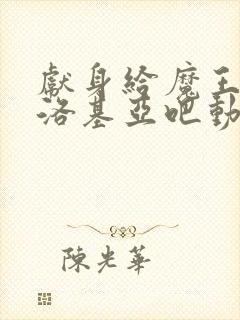 獻身給魔王伊
洛基亞吧動
陳光華